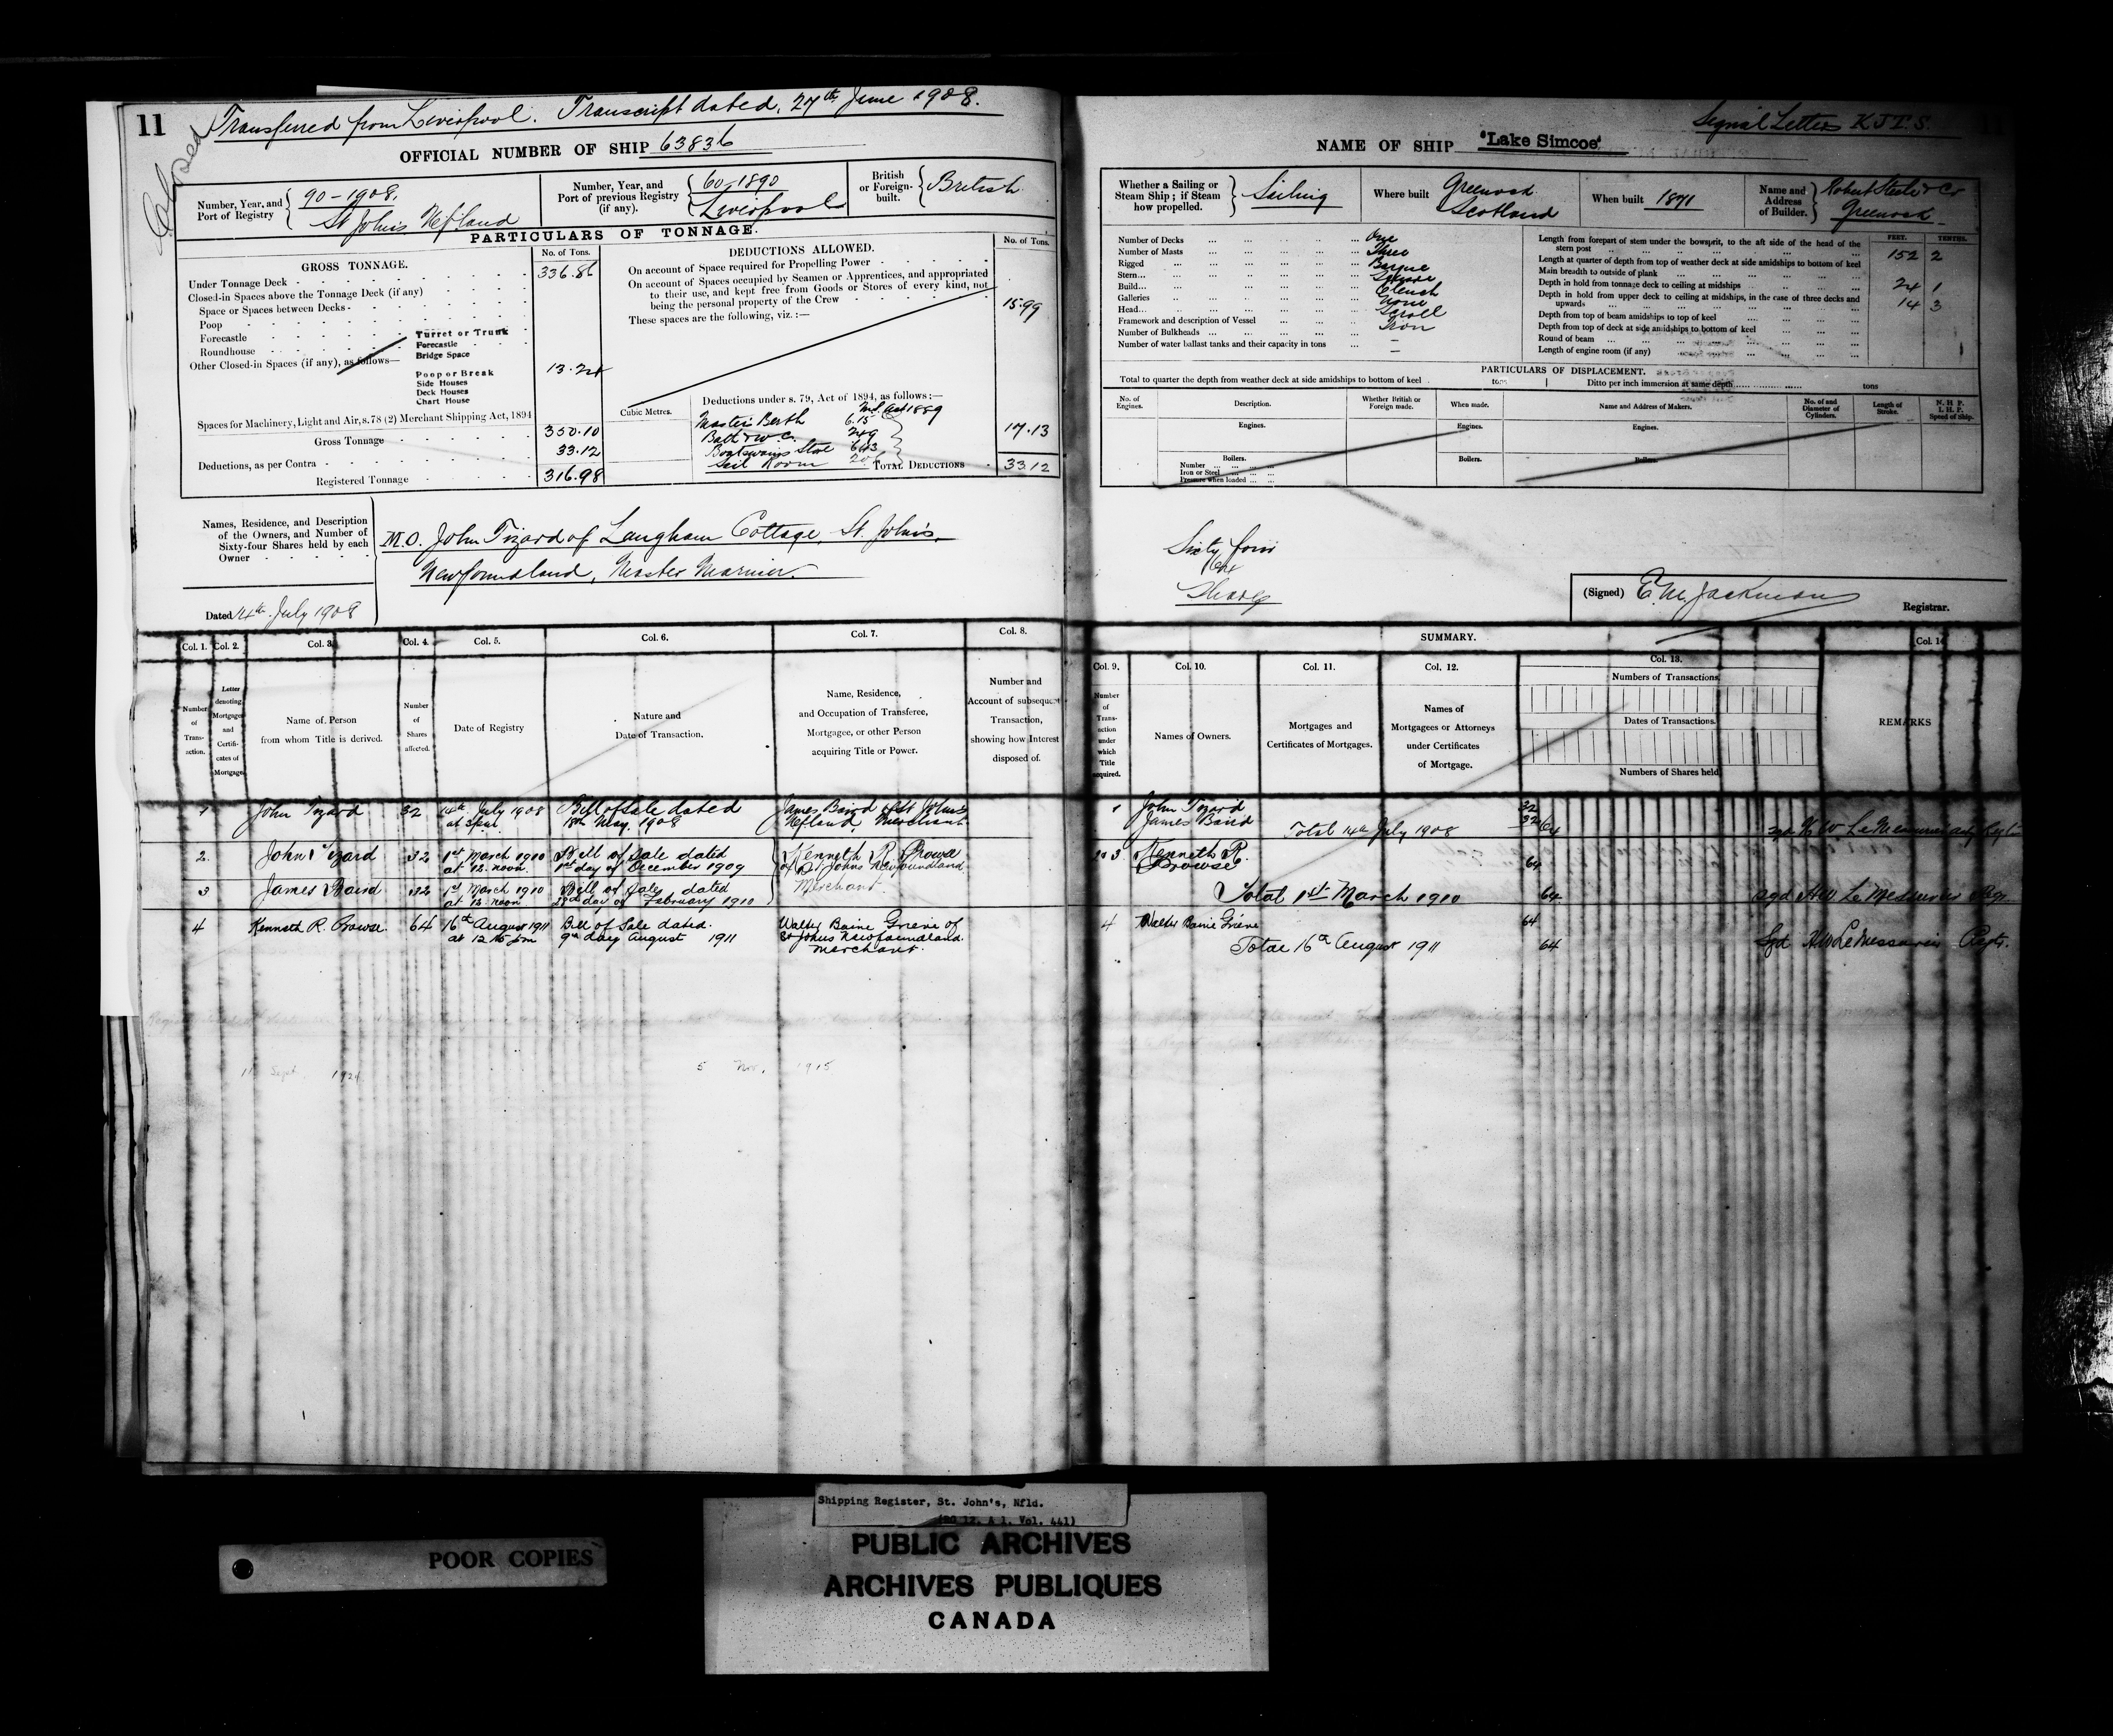 11
Closed
Transferred from Liverpool. Transcript dated, 27th June 1908.
OFFICIAL NUMBER OF SHIP 63836
Number, Year, and Port of Registry
90-1908.
St John's Nfland
Number, Year, and Port of previous Registry (if any).
60-1890
Liverpool
British or Foreign-built.
British
PARTICULARS OF TONNAGE.
GROSS TONNAGE.
No. of Tons.
Under Tonnage Deck 336.86
Closed-in Spaces above the Tonnage Deck (if any)
Space or Spaces between Decks
Poop
Forecastle
Roundhouse
Other Closed-in Spaces (if any), as follows—
Turret or Trunk
Forecastle
Bridge Space
Poop or Break
Side Houses
Deck Houses
Chart House
13.24
Spaces for Machinery, Light and Air, s. 78 (2) Merchant Shipping Act, 1894
Gross Tonnage 350.10
Deductions, as per Contra 33.12
Registered Tonnage 316.98
DEDUCTIONS ALLOWED.
No. of Tons.
On account of Space required for Propelling Power
On account of Spaces occupied by Seamen or Apprentices, and appropriated
to their use, and kept free from Goods or Stores of every kind, not
being the personal property of the Crew 15.99
These spaces are the following, viz. :—
Cubic Metres.
Deductions under s. 79, Act of 1894, as follows:—
Act 1889
Master's Berth 6.15
249
Boatswains Store 643
Sail Room
17.13
TOTAL DEDUCTIONS 33 12
Names, Residence, and Description
of the Owners, and Number of
Sixty-four Shares held by each
Owner
M.O. John Tizard of Langham Cottage, St. John's,
Newfoundland, Master Mariner.
Dated 14th July 1908
Signal Letters K J T S.
NAME OF SHIP "Lake Simcoe"
Whether a Sailing or Steam Ship ; if Steam how propelled.
Sailing
Where built
Greenock
Scotland
When built 1871
Name and Address of Builder.
Robert Steele & Co
Greenock
Number of Decks One
Number of Masts Three
Rigged Barque
Stern Square
Build Clench
Galleries None
Head Scroll
Framework and description of Vessel Iron
Number of Bulkheads –
Number of water ballast tanks and their capacity in tons –
FEET. TENTHS.
Length from forepart of stem under the bowsprit, to the aft side of the head of the
stern post 152 2
Length at quarter of depth from top of weather deck at side amidships to bottom of keel
Main breadth to outside of plank 24 1
Depth in hold from tonnage deck to ceiling at midships 14 3
Depth in hold from upper deck to ceiling at midships, in the case of three decks and
upwards
Depth from top of beam amidships to top of keel
Depth from top of deck at side amidships to bottom of keel
Round of beam
Length of engine room (if any)
PARTICULARS OF DISPLACEMENT.
Total to quarter the depth from weather deck at side amidships to bottom of keel tons
Ditto per inch immersion at same depth tons
No. of Engines.
Description.
Whether British or Foreign made.
When made.
Name and Address of Makers.
No. of and Diameter of Cylinders.
Length of Stroke.
N. H. P.
I. H. P.
Speed of Ship.
Engines. Engines. Engines.
Boilers. Boilers. Boilers.
Number
Iron or Steel
Pressure when loaded
Sixty four
Shares
(Signed) E. M. Jackman
Registrar.
Col. 1. Col. 2. Col. 3. Col. 4. Col. 5. Col. 6. Col. 7. Col. 8.
Number of Transaction.
Letter denoting Mortgages and Certificates of Mortgage
Name of Person from whom Title is derived.
Number of Shares affected.
Date of Registry
Nature and Date of Transaction.
Name, Residence, and Occupation of Transferee, Mortgagee, or other Person acquiring Title or Power.
Number and Account of subsequent Transaction, showing how Interest disposed of.
SUMMARY.
Col. 9. Col. 10. Col. 11. Col. 12. Col. 13. Col. 14
Number of Transaction under which Title acquired.
Names of Owners.
Mortgages and Certificates of Mortgages.
Names of Mortgagees or Attorneys under Certificates of Mortgage.
Numbers of Transactions.
Dates of Transactions.
Numbers of Shares held
REMARKS
1 John Tizard 32 14th July 1908 Bill of Sale dated James Baird of St John's
at 3 p.m. 18th May, 1908 Nfland, Merchant.
2. John Tizard 32 1st March 1910 Bill of Sale dated Kenneth R. Prowse
at 12. noon. 1st day of December 1909 of St Johns Newfoundland
3 James Baird 32 1st March 1910 Bill of Sale dated Merchant.
at 12. noon 28th day of February 1910
4 Kenneth R. Prowse. 64 16th August 1911 Bill of Sale dated. Walter Baine Grieve of
at 12 15 pm 9th day August 1911 St Johns Newfoundland.
Merchant.
1 John Tizard 32
James Baird 32
Total 14th July 1908 64
2 & 3 Kenneth R.
Prowse 64
Total 1st March 1910 64 sgd H W Le Messurier Regr.
4 Walter Baine Grieve 64
Total 16th August 1911 64 Sgd H W LeMessurier Regtr.
11 Sept. 1924
5 Nov. 1915
Shipping Register, St. John's, Nfld.
(RG 12, A 1, Vol. 441)
POOR COPIES
PUBLIC ARCHIVES
ARCHIVES PUBLIQUES
CANADA